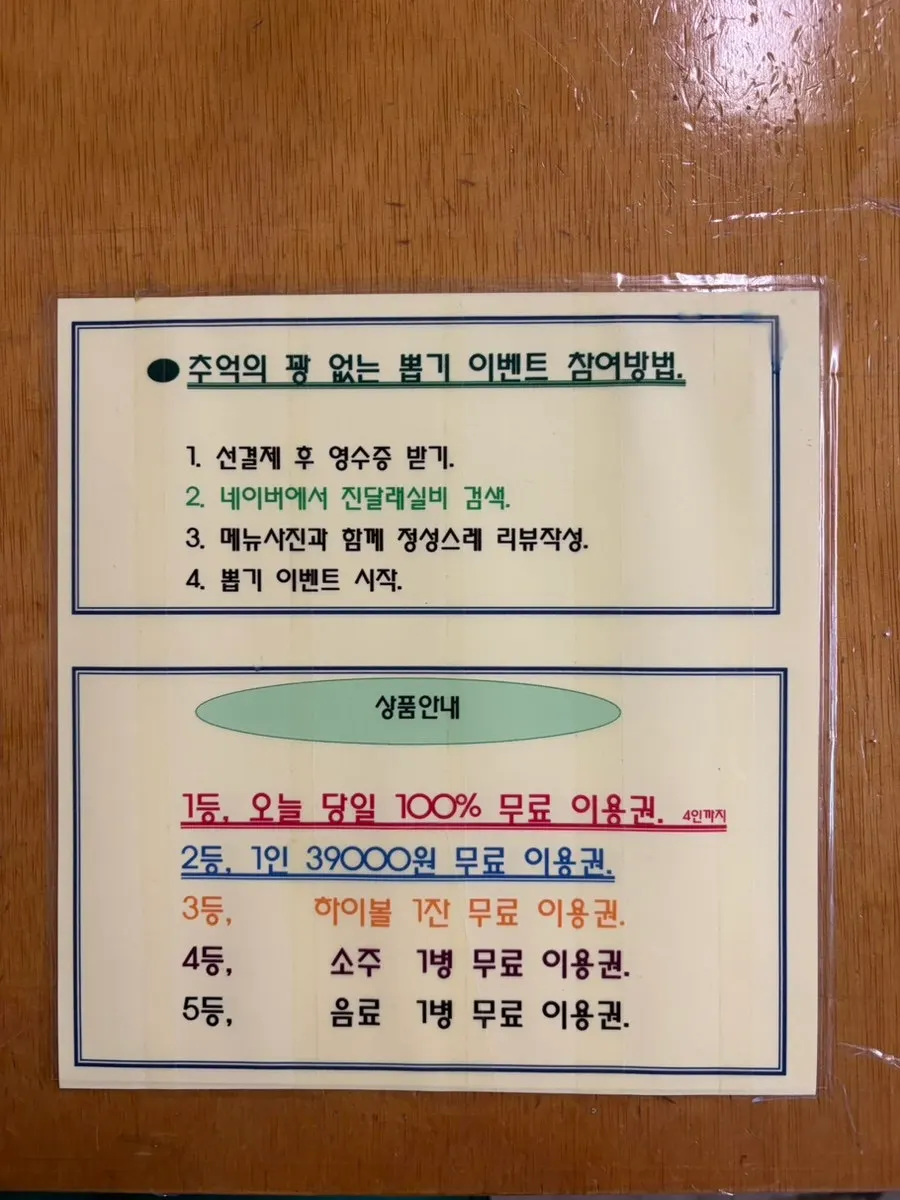 ● 추억의 꽝 없는 뽑기 이벤트 참여방법.
1. 선결제 후 영수증 받기.
2. 네이버에서 진달래실비 검색.
3. 메뉴사진과 함께 정성스레 리뷰작성.
4. 뽑기 이벤트 시작.
상품안내
1등, 오늘 당일 100% 무료 이용권. 4인까지
2등, 1인 39000원 무료 이용권.
3등, 하이볼 1잔 무료 이용권.
4등, 소주 1병 무료 이용권.
5등, 음료 1병 무료 이용권.